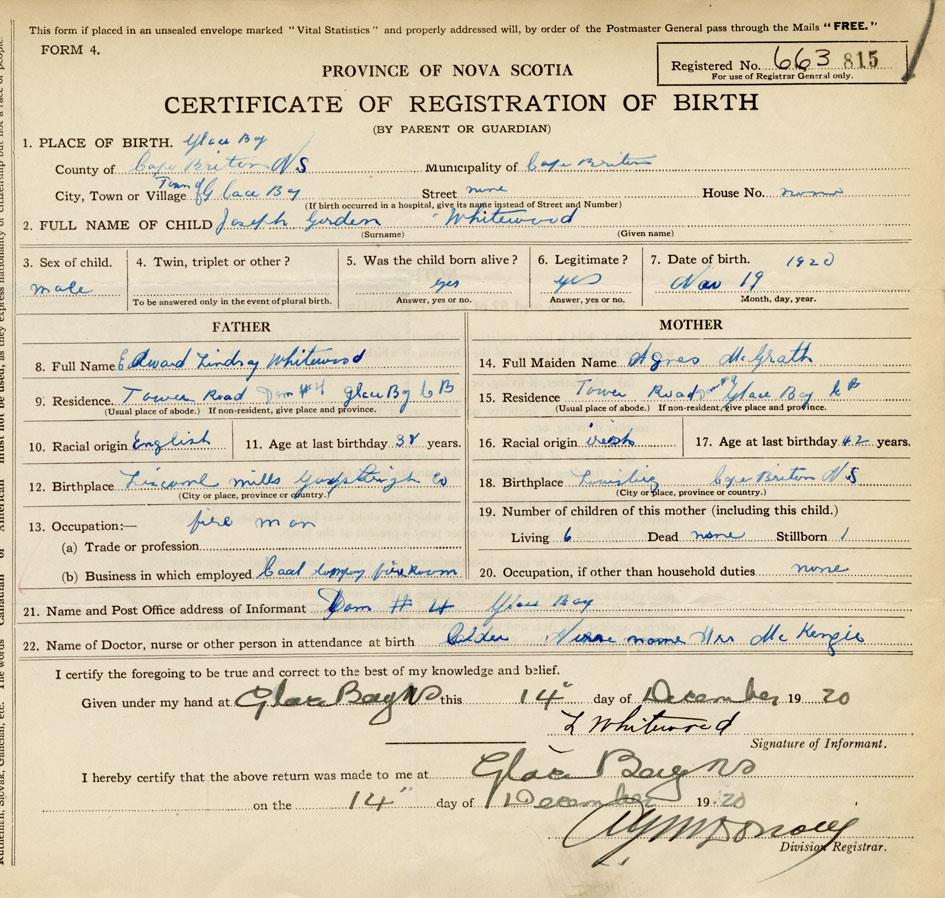 This form if placed in an unsealed envelope marked "Vital Statistics" and properly addressed will, by order of the Postmaster General pass through the Mails "FREE."
FORM 4.
Registered No. 663 815
For use of Registrar General only.
PROVINCE OF NOVA SCOTIA
CERTIFICATE OF REGISTRATION OF BIRTH
(BY PARENT OR GUARDIAN)
1. PLACE OF BIRTH. Glace Bay
County of Cape Briton NS Municipality of Cape Briton
City, Town or Village Town of Glace Bay Street none House No. none
(If birth occurred in a hospital, give its name instead of Street and Number)
2. FULL NAME OF CHILD Joseph Gorden Whitewood
(Surname) (Given name)
3. Sex of child. 4. Twin, triplet or other? 5. Was the child born alive? 6. Legitimate? 7. Date of birth. 1920
male yes yes Nov 19
To be answered only in the event of plural birth. Answer, yes or no. Answer, yes or no. Month, day, year.
FATHER MOTHER
8. Full Name Edward Lindsay Whitewood 14. Full Maiden Name Agnes McGrath
9. Residence. Tower Road Dom #4 Glace Bay C B 15. Residence Tower Road Dom #4 Glace Bay C B
(Usual place of abode.) If non-resident, give place and province. (Usual place of abode.) If non-resident, give place and province.
10. Racial origin English 11. Age at last birthday 38 years. 16. Racial origin irish 17. Age at last birthday 42 years.
12. Birthplace Liscomb mills Co 18. Birthplace Cape Briton NS
(City or place, province or country.) (City or place, province or country.)
13. Occupation:— fire man 19. Number of children of this mother (including this child.)
(a) Trade or profession Living 6 Dead none Stillborn 1
(b) Business in which employed Coal company fire room 20. Occupation, if other than household duties none
21. Name and Post Office address of Informant Dom # 4 Glace Bay
22. Name of Doctor, nurse or other person in attendance at birth Calder Nurse name Mrs McKenzie
I certify the foregoing to be true and correct to the best of my knowledge and belief.
Given under my hand at Glace Bay NS this 14" day of December 1920
L Whitewood
Signature of Informant.
I hereby certify that the above return was made to me at Glace Bay NS
on the 14" day of December 1920
Division Registrar.